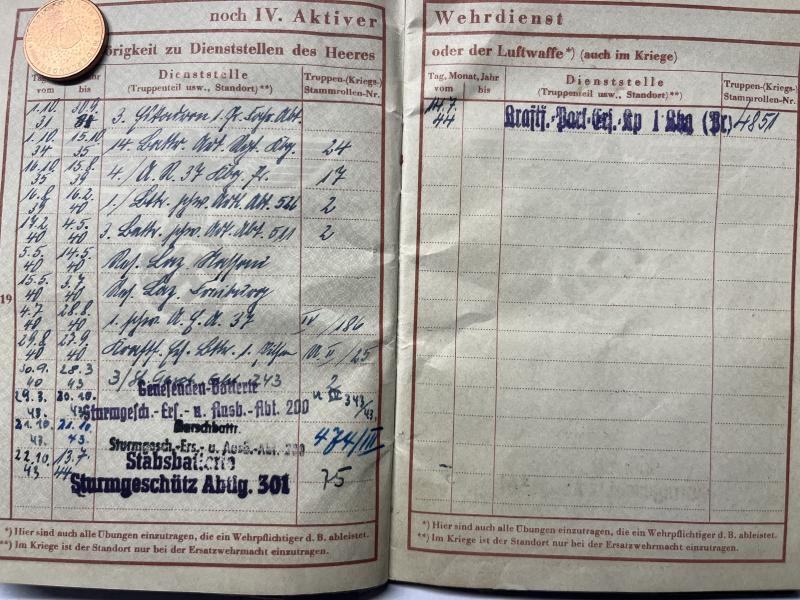 noch IV. Aktiver
örigkeit zu Dienststellen des Heeres
Tag hr
vom bis
Dienststelle
(Truppenteil usw., Standort)**)
Truppen-(Kriegs-)
Stammrollen-Nr.
1.10. 30.9.
31 3. 1.
1.10. 15.10.
34 35 14. Battr. Art. Rgt. Kbg. 24
16.10. 15.8.
35 39 4./A.R. 37 Kbg. Pr. 17
16.8. 16.2.
39 40 1./Bttr. schw. Art. Abt. 526 2
17.2. 4.5.
40 40 3. Battr. schw. Art. Abt. 511 2
5.5. 14.5.
40 40 Res. Laz.
15.5. 3.7.
19 40 40 Res. Laz.
4.7. 28.8.
40 40 1. schw. A.E.A. 37 IV/186
29.8. 27.9.
40 40 Bttr. 1. /25
30.9. 28.3
40 43 3/ 243 2
Genesenden-Batterie
29.3. 20.10.
43. 43 Sturmgesch.-Ers.- u. Ausb.-Abt. 200 343/43.
Marschbattr.
21.10. 21.10.
43. 43. Sturmgesch.-Ers.- u. Ausb.-Abt. 200 474/III
22.10. 13.7.
43 44 Stabsbatterie
Sturmgeschütz Abtlg. 301 75
*) Hier sind auch alle Übungen einzutragen, die ein Wehrpflichtiger d. B. ableistet.
**) Im Kriege ist der Standort nur bei der Ersatzwehrmacht einzutragen.
Wehrdienst
oder der Luftwaffe*) (auch im Kriege)
Tag, Monat, Jahr
vom bis
Dienststelle
(Truppenteil usw., Standort)**)
Truppen-(Kriegs-)
Stammrollen-Nr.
14.7.
44 Kraftf.-Park-Ers.-Kp 1 Kbg (Pr) 4851
*) Hier sind auch alle Übungen einzutragen, die ein Wehrpflichtiger d. B. ableistet.
**) Im Kriege ist der Standort nur bei der Ersatzwehrmacht einzutragen.